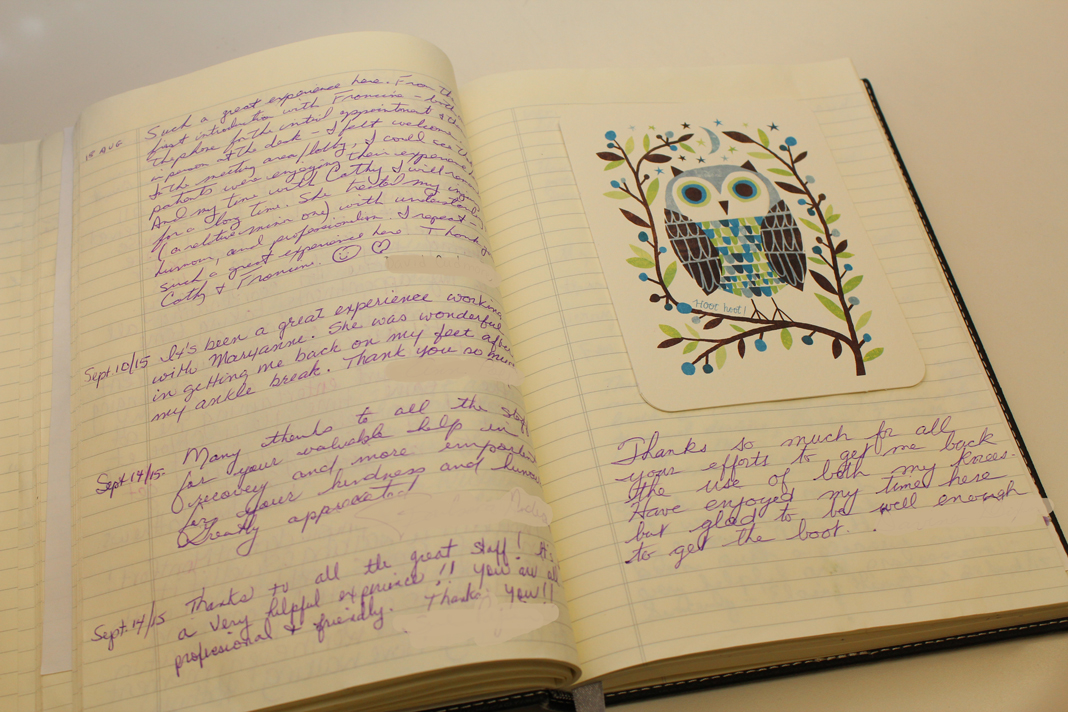 18 AUG
Such a great experience here. From the
first introduction with Francine - both
the phone for the initial appointment &
in person at the desk - I felt welcome
to the meeting area/lobby, I could see
patients were enjoying their experience
And my time with Cathy I will
for a long time. She treated my
(a relative minor one) with
humour, and professionalism. I repeat -
such a great experience here. Thank you
Cathy & Francine.
Sept. 10/15 It's been a great experience working
with Maryanne. She was wonderful
in getting me back on my feet after
my ankle break. Thank you so much
Sept 14/15. Many thanks to all the staff
for your valuable help in
recovery and more important
for your kindness and humour
Greatly appreciated
Sept. 14/15 Thanks to all the great staff! It's
a very helpful experience!! You are all
profesional & friendly. Thanks you!!
Hoot hoot!
Thanks so much for all
your efforts to get me back
the use of both my knees.
Have enjoyed my time here
but glad to be well enough
to get the boot.